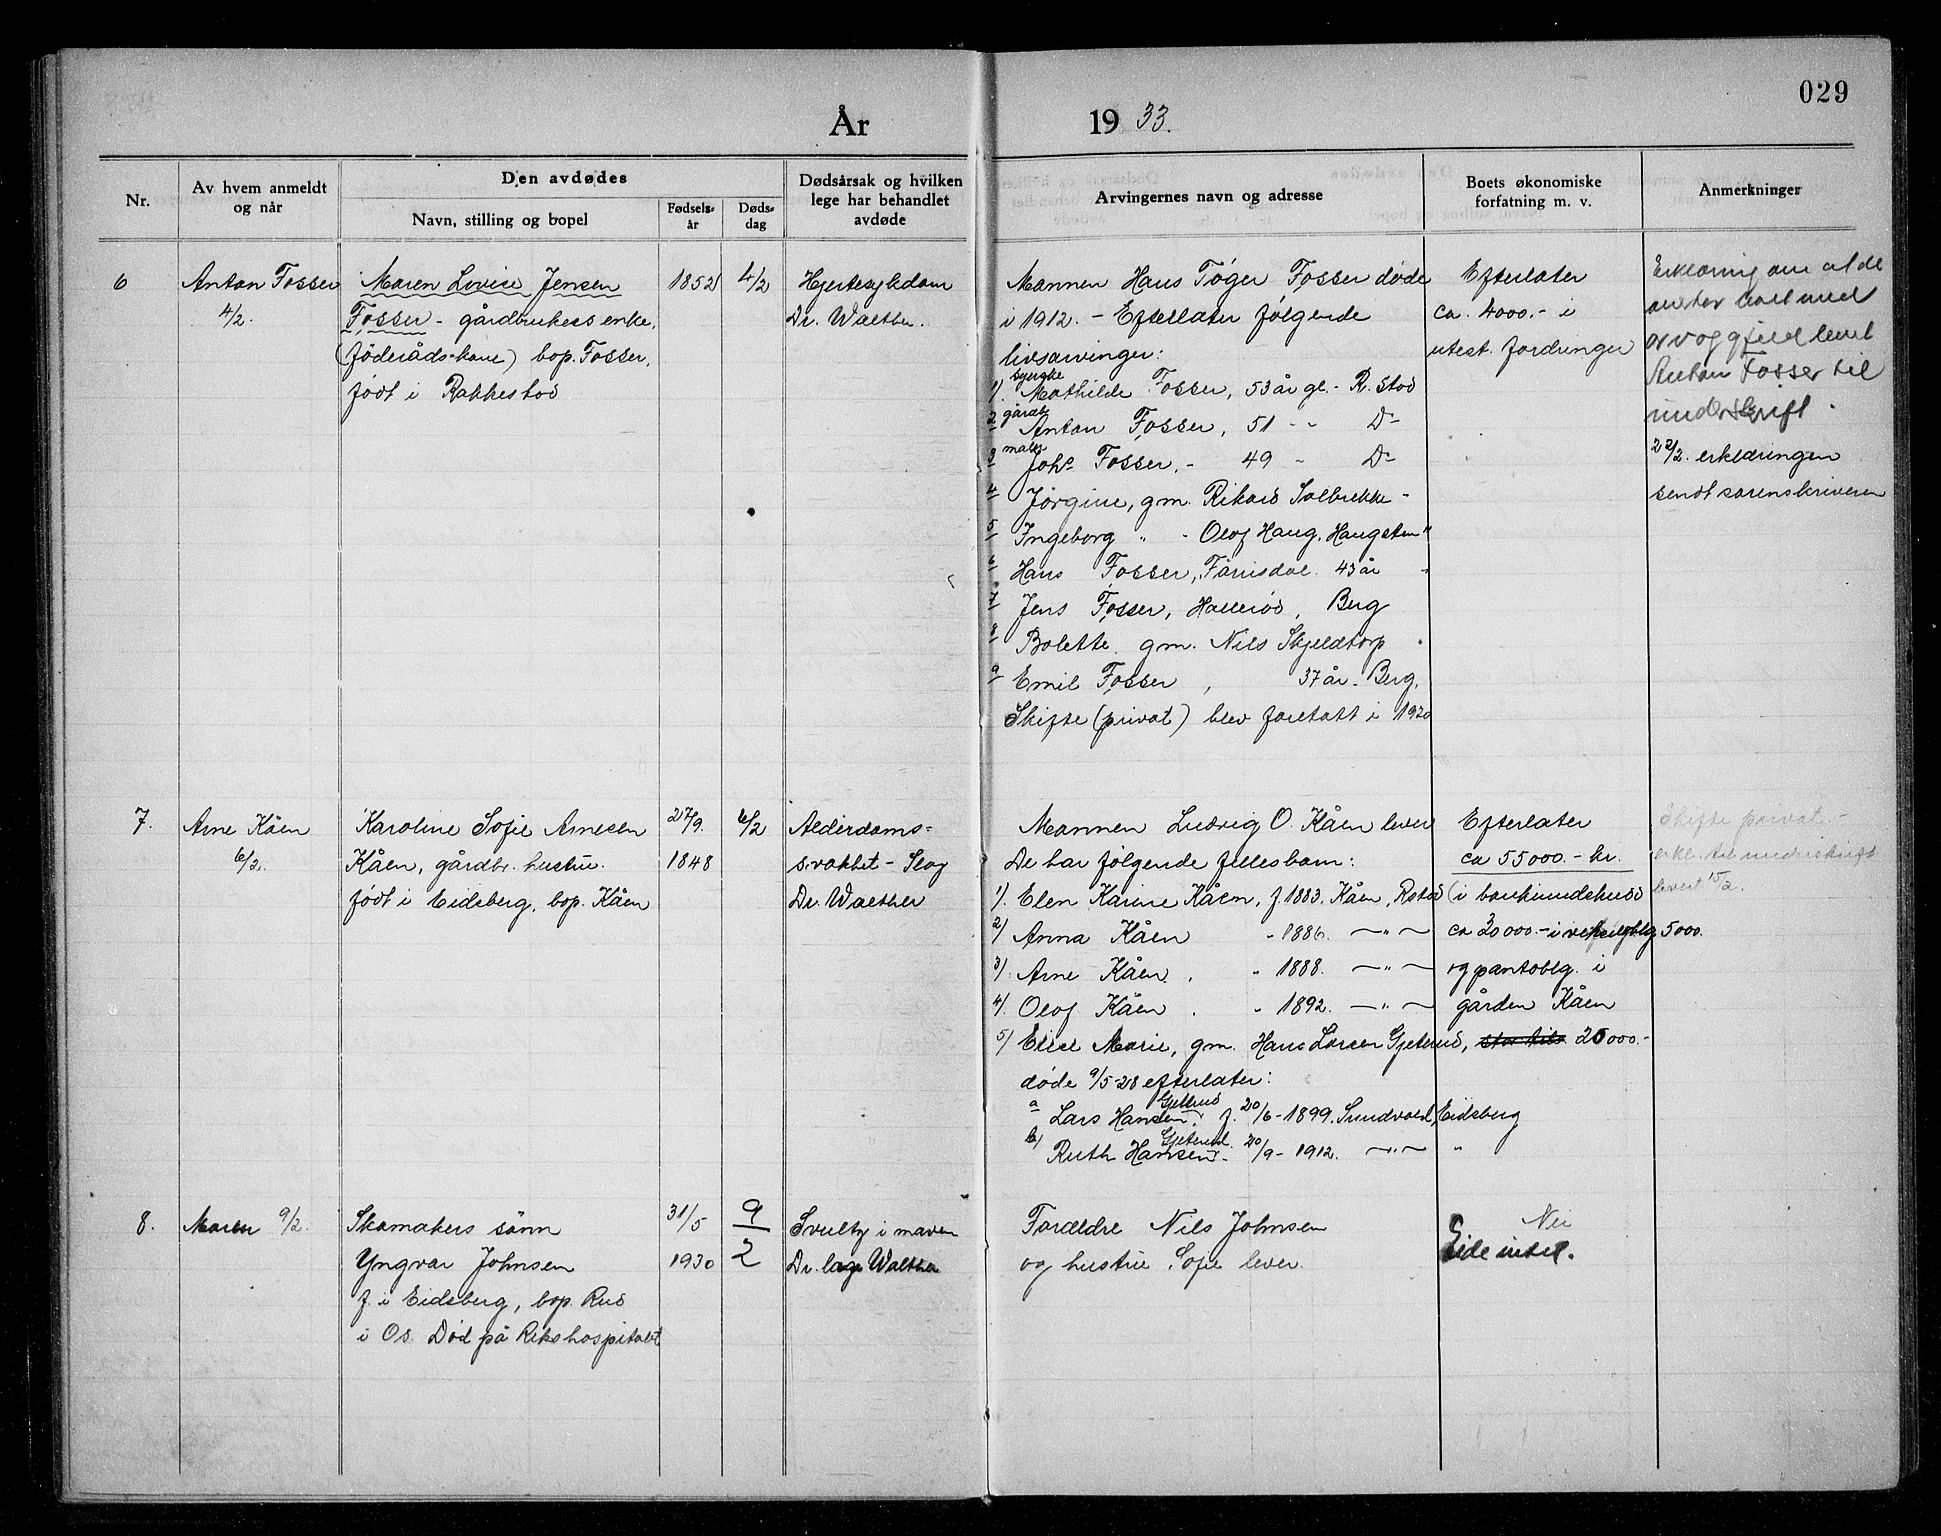 029
År 1933.
Nr.
Av hvem anmeldt og når
Den avdødes
Navn, stilling og bopel
Fødselsår
Dødsdag
Dødsårsak og hvilken lege har behandlet avdøde
Arvingernes navn og adresse
Boets økonomiske forfatning m. v.
Anmerkninger
6
Anton Fosser
4/2.
Maren Lovise Jensen
Fosser - gårdbrukers enke,
(föderådskone) bop. Fosser,
født i Rakkestad
1852
4/2
Hjertesykdom
Dr. Walther.
Mannen Hans Tøger Fosser døde
i 1912. - Efterlater følgende
livsarvinger:
1). syerske Mathilde Fosser, 53 år gl. - R.stad
2 gårdb. Anton Fosser, 51 " - D-
3 maler Johs Fosser. - 49 - D-
4 Jørgine, gm. Rikard Solbrekke -
5 Ingeborg " - Olaf Haug, Haugsten "
6 Hans Fosser, 43 år
7 Jens Fosser, Hallerød, Berg
8 Bolette gm. Nils Skjeldtorp
9 Emil Fosser, 37 år - Berg.
Skifte (privat) blev foretatt i 1920
Efterlater
ca. 4000.- i
utest. fordringer
Erklæring om at de
arv og gjeld levert
Anton Fosser til
underskrift.
22/2. erklæringen
sendt sorenskriveren
7.
Arne Kåen
6/2.
Karoline Sofie Arnesen
Kåen, gårdbr. hustru.
født i Eidsberg, bop. Kåen
27/9.
1848
6/2
Alderdoms-
svakhet - Slag
Dr. Walther
Mannen Ludvig O. Kåen lever
De har følgende fellesbarn:
1). Elen Karine Kåen, f. 1883. Kåen, Rstad
2) Anna Kåen " 1886. —"—
3) Arne Kåen. " 1888. —"—
4) Olaf Kåen. " 1892. —"—
5) Elise Marie, gm. Hans Larsen Gjeterud,
døde 9/5-28 efterlater:
a Lars Hansen Gjeterud f. 20/6-1899. Sundvold, Eidsberg
b) Ruth Hansen Gjeterud. 20/9-1912. —"— "
Efterlater
ca 55000.- kr.
(i bankinnskudd
ca 30000.- i 5000.
og pantoblg. i
gården Kåen
25000.-
Skifte privat. -
erkl. til underskrift
levert 15/2.
8.
Maren 9/2.
Skomakers sønn
Yngvar Johnsen
f. i Eidsberg, bop. Rud
i Os. Død på Rikshospitalet
31/5
1930
9
2
Svulst i maven
Dr. Walther
Foreldre Nils Johnsen
og hustru Sofie lever.
Nei
Eide intet.